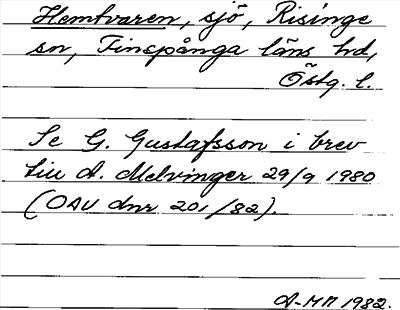 Hemtvaren, sjö, Risinge
sn, Finspånga läns hd,
Östg. l.
Se G. Gustafsson i brev
till A. Melvinger 29/9 1980
(OAU dnr 201/82).
A-MN 1982.